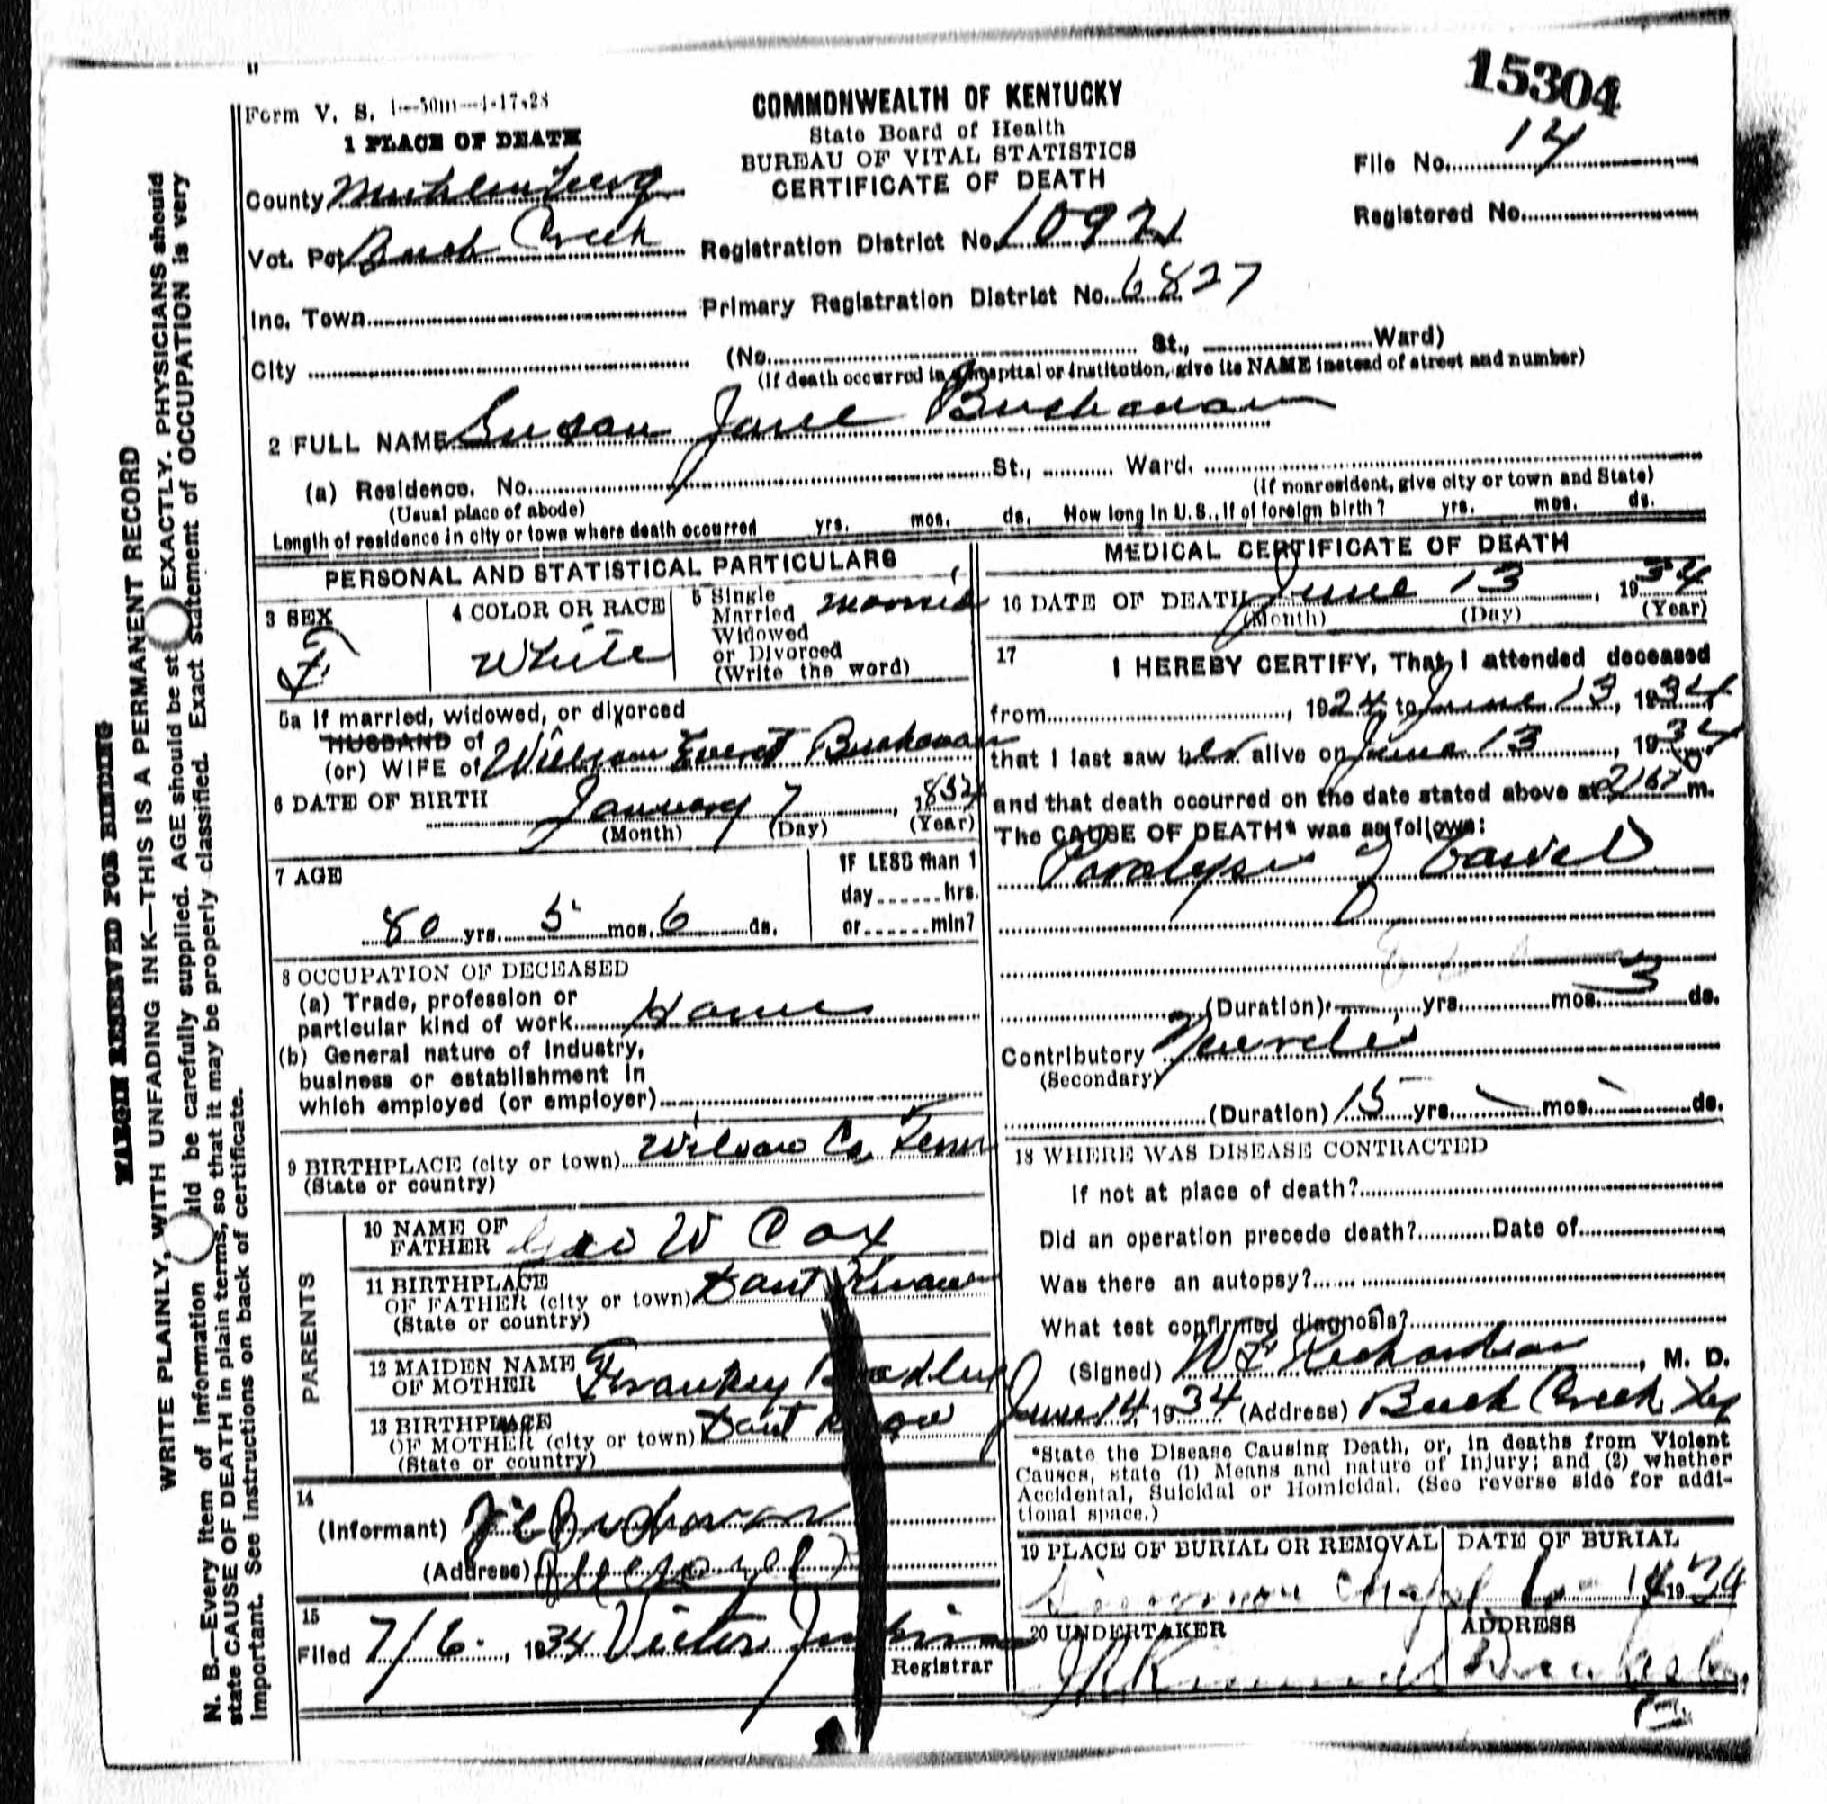 15304
Form V. S. 1—50m—4-17-28
COMMONWEALTH OF KENTUCKY
State Board of Health
BUREAU OF VITAL STATISTICS
CERTIFICATE OF DEATH
1 PLACE OF DEATH
County Muhlenberg
Vot. Pct Buck Creek
Inc. Town
City
File No. 14
Registered No.
Registration District No. 10921
Primary Registration District No. 6827
(No. St., Ward)
(If death occurred in a hospital or institution, give its NAME instead of street and number)
2 FULL NAME Susan Jane Buchanan
(a) Residence. No. St., Ward.
(Usual place of abode) (If nonresident, give city or town and State)
Length of residence in city or town where death occurred yrs. mos. ds. How long in U. S., if of foreign birth? yrs. mos. ds.
PERSONAL AND STATISTICAL PARTICULARS
3 SEX
F
4 COLOR OR RACE
White
5 Single
Married
Widowed
or Divorced
(Write the word)
Married
5a If married, widowed, or divorced
HUSBAND of
(or) WIFE of William Buchanan
6 DATE OF BIRTH January 7, 
(Month) (Day) (Year)
7 AGE
80 yrs. 5 mos. 6 ds.
IF LESS than 1
day hrs.
or min?
8 OCCUPATION OF DECEASED
(a) Trade, profession or
particular kind of work Home
(b) General nature of Industry,
business or establishment in
which employed (or employer)
9 BIRTHPLACE (city or town) Wilson Co, Tenn
(State or country)
PARENTS
10 NAME OF
FATHER Geo W Cox
11 BIRTHPLACE
OF FATHER (city or town) Dont Know
(State or country)
12 MAIDEN NAME
OF MOTHER
13 BIRTHPLACE
OF MOTHER (city or town) Dont Know
(State or country)
14
(Informant) Buchanan
(Address)
15
Filed 7/6, 1934 Victor Jenkins
Registrar
MEDICAL CERTIFICATE OF DEATH
16 DATE OF DEATH June 13, 1934
(Month) (Day) (Year)
17 I HEREBY CERTIFY, That I attended deceased
from , 1924, to June 13, 1934,
that I last saw her alive on June 13, 1934
and that death occurred on the date stated above at m.
The CAUSE OF DEATH* was as follows:
Paralysis of bowels
(Duration) yrs. mos. 3 ds.
Contributory
(Secondary)
(Duration) 15 yrs. mos. ds.
18 WHERE WAS DISEASE CONTRACTED
If not at place of death?
Did an operation precede death? Date of
Was there an autopsy?
What test confirmed diagnosis?
(Signed) Richardson, M. D.
June 14, 1934 (Address) Buck Creek, Ky
*State the Disease Causing Death, or, in deaths from Violent
Causes, state (1) Means and nature of Injury; and (2) whether
Accidental, Suicidal or Homicidal. (See reverse side for addi-
tional space.)
19 PLACE OF BURIAL OR REMOVAL DATE OF BURIAL
6-14 1934
20 UNDERTAKER ADDRESS
MARGIN RESERVED FOR BINDING
WRITE PLAINLY, WITH UNFADING INK—THIS IS A PERMANENT RECORD
N. B.—Every item of information should be carefully supplied. AGE should be stated EXACTLY. PHYSICIANS should
state CAUSE OF DEATH in plain terms, so that it may be properly classified. Exact statement of OCCUPATION is very
important. See instructions on back of certificate.